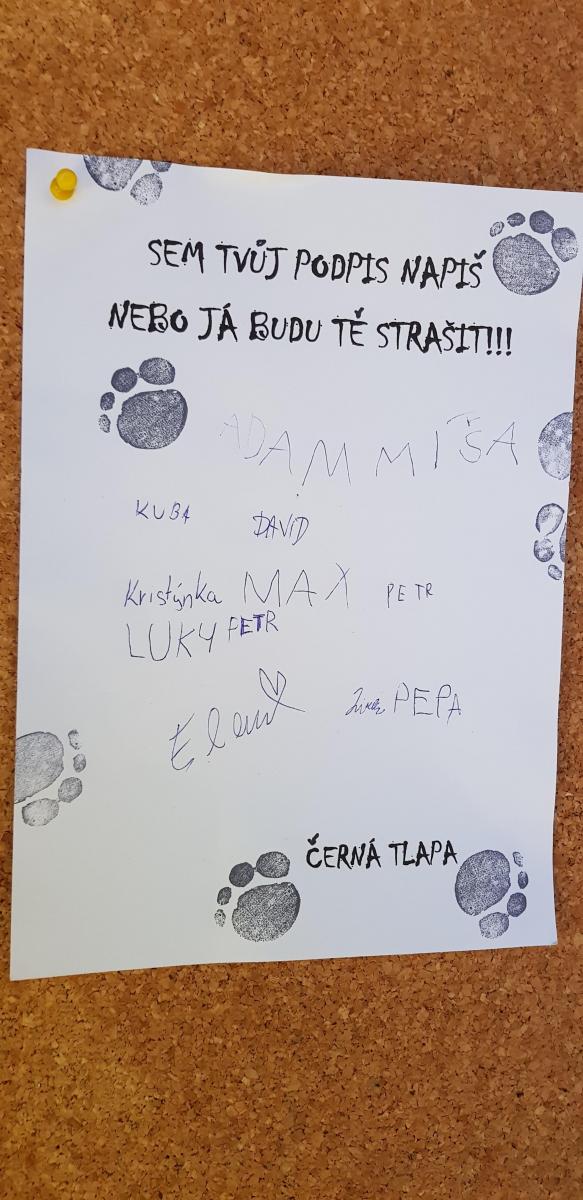 SEM TVŮJ PODPIS NAPIŠ
NEBO JÁ BUDU TĚ STRAŠIT!!!
ADAM MÍŠA
KUBA DAVID
Kristýnka MAX PETR
LUKY PETR
PEPA
ČERNÁ TLAPA